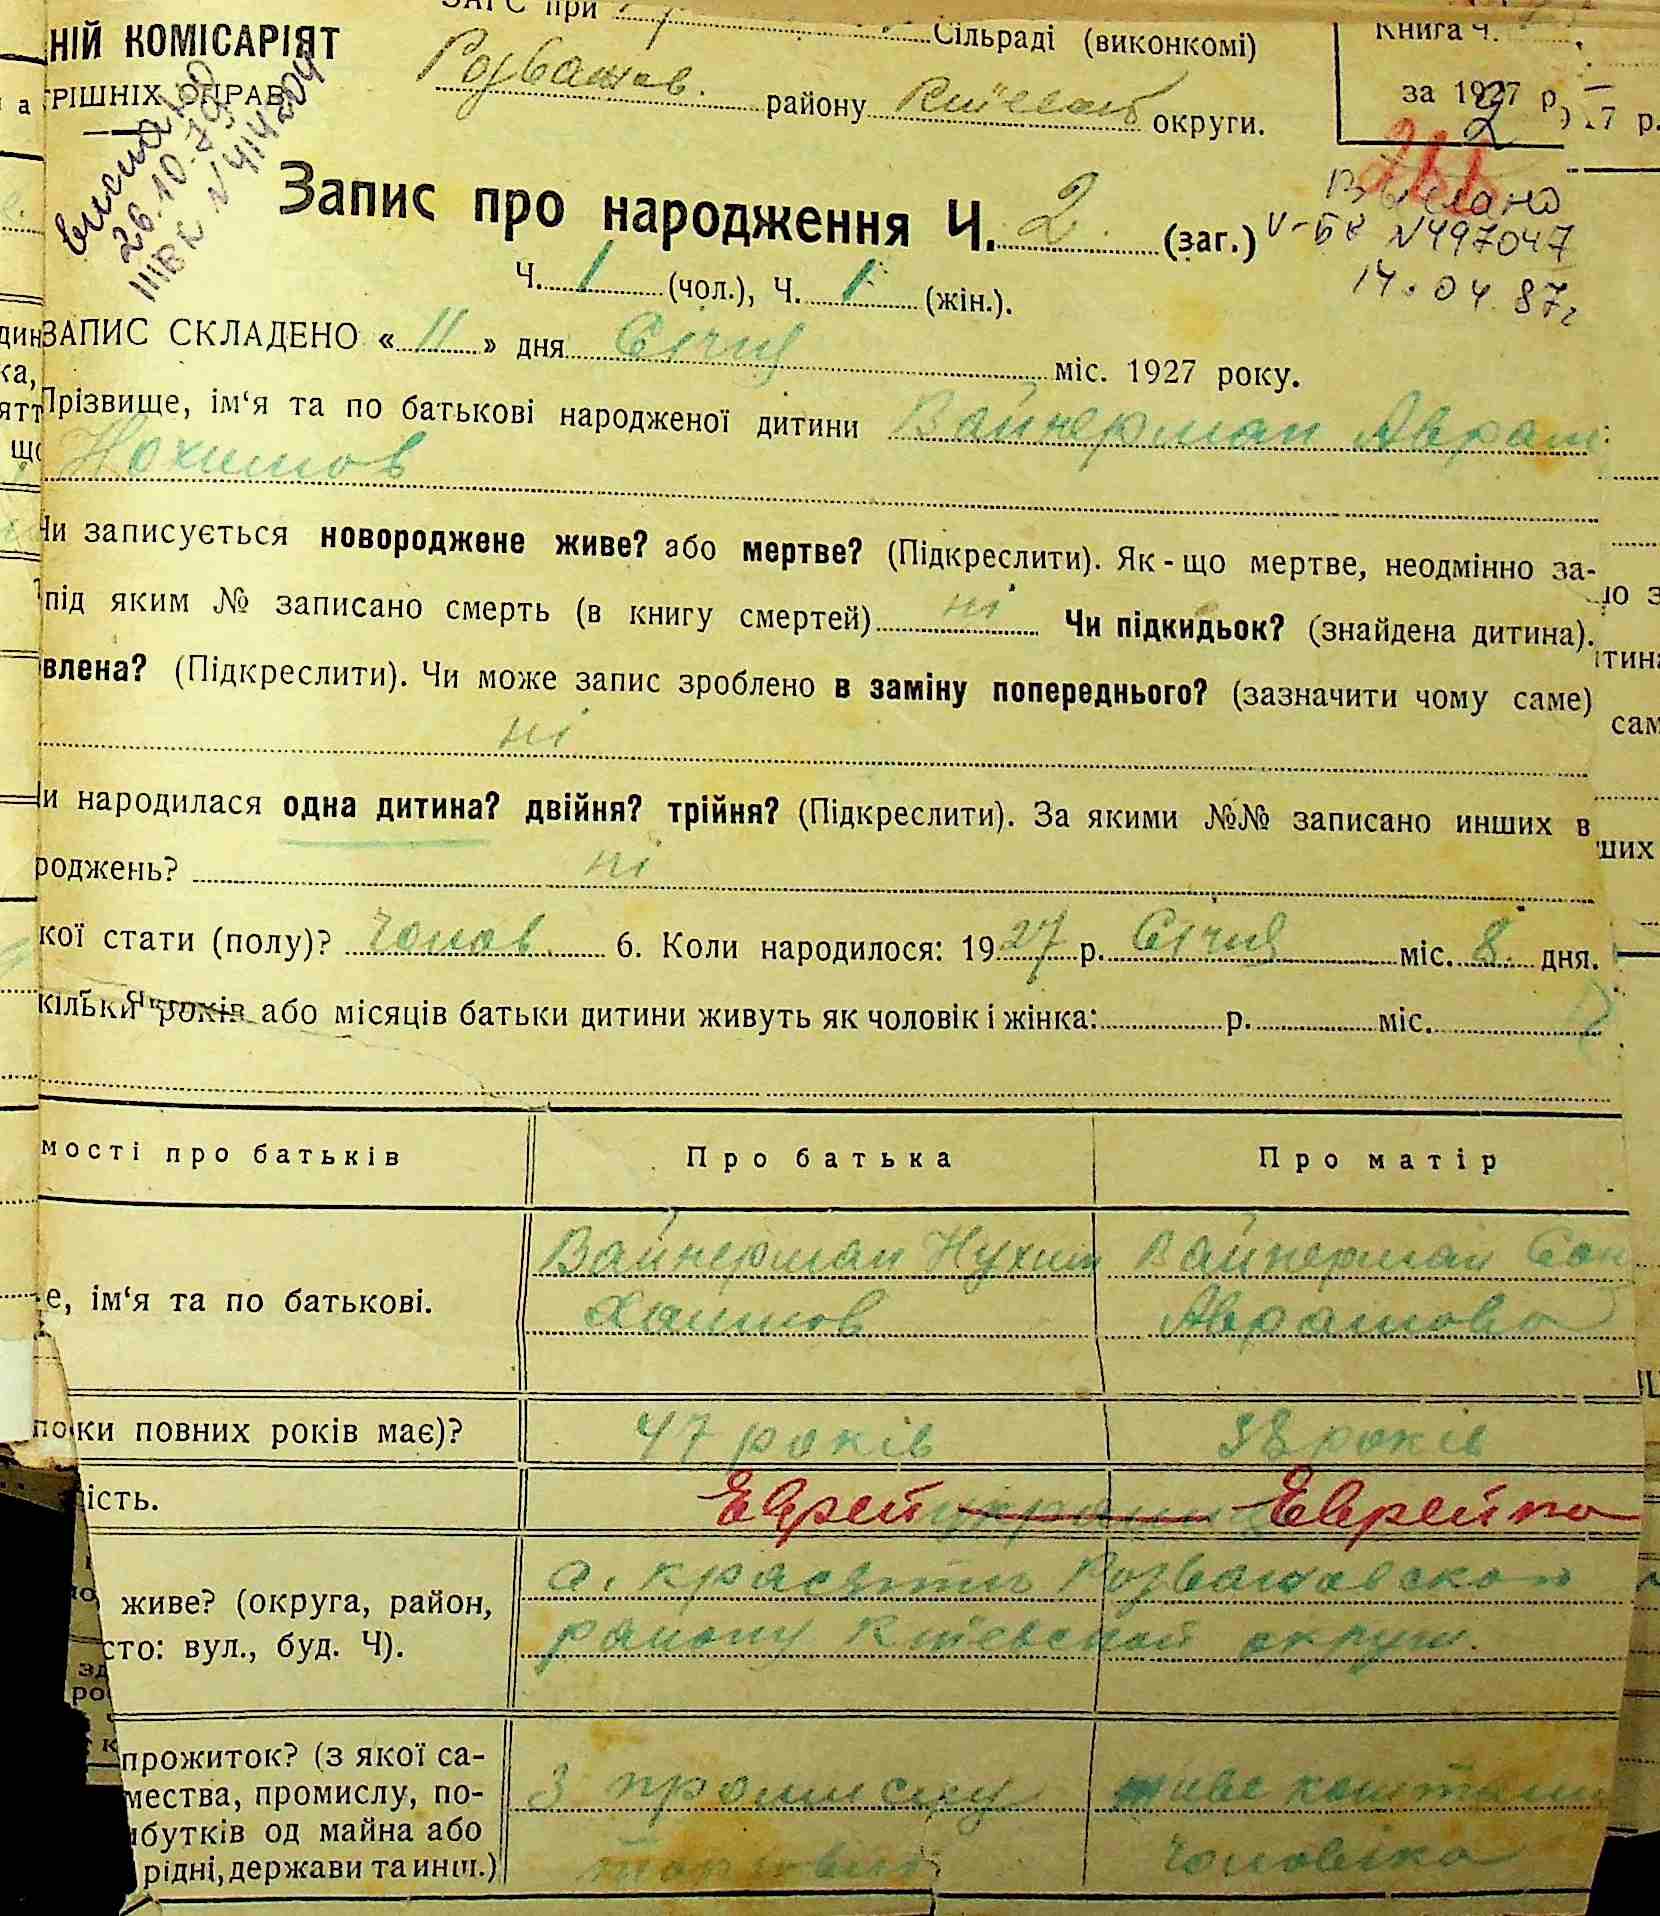 ЗАГС при Сільраді (виконкомі)
НІЙ КОМІСАРІЯТ
Книга Ч.
РІШНІХ СПРАВ
Розважів. району Київськ округи.
за 1927 р.
Вислано
26.10.79
ІІІВК N 414204
266
Запис про народження Ч. 2 (заг.)
Выслано
V-БК N497047
14.04.87г
Ч. 1 (чол.), Ч. 1 (жін.).
ЗАПИС СКЛАДЕНО « 11 » дня Січня міс. 1927 року.
Прізвище, ім‘я та по батькові народженої дитини Вайнерман Аврам
Нохимов
Чи записується новороджене живе? або мертве? (Підкреслити). Як-що мертве, неодмінно за-
під яким № записано смерть (в книгу смертей) ні Чи підкидьок? (знайдена дитина).
влена? (Підкреслити). Чи може запис зроблено в заміну попереднього? (зазначити чому саме)
ні
и народилася одна дитина? двійня? трійня? (Підкреслити). За якими №№ записано инших в
роджень? ні
кої стати (полу)? Чолов. 6. Коли народилося: 1927 р. Січня міс. 8 дня.
кільки років або місяців батьки дитини живуть як чоловік і жінка: р. міс.
мості про батьків Про батька Про матір
Вайнерман Нухим Вайнерман Сон
е, ім‘я та по батькові. Хаимов Аврамовна
поки повних років має)? 47 років 38 років
ість. Еврей Еврейка
с. Красятичь Розважовского
живе? (округа, район,
району Киевской округи.
сто: вул., буд. Ч).
прожиток? (з якої са-
мества, промислу, по- З промислу живе коштами
ибутків од майна або
рідні, держави та инш.) чоловіка